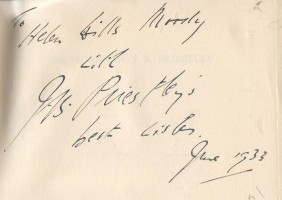 To
Helen Wills Moody
with
J.B. Priestley's
best wishes.
June 1933